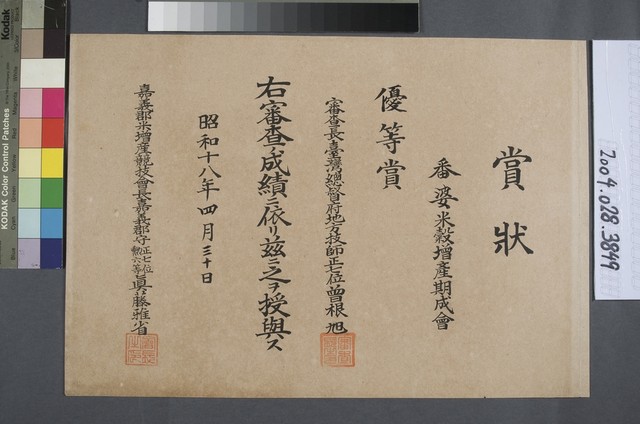 賞狀
番婆米穀增產期成會
優等賞
審查長臺灣總督府地方技師正七位曾根旭
右審查ノ成績ニ依リ茲ニ之ヲ授與ス
昭和十八年四月三十日
嘉義郡米增產競技會長嘉義郡守正七位勲六等眞藤雅省
2009.028.3849
KODAK Color Control Patches
Kodak